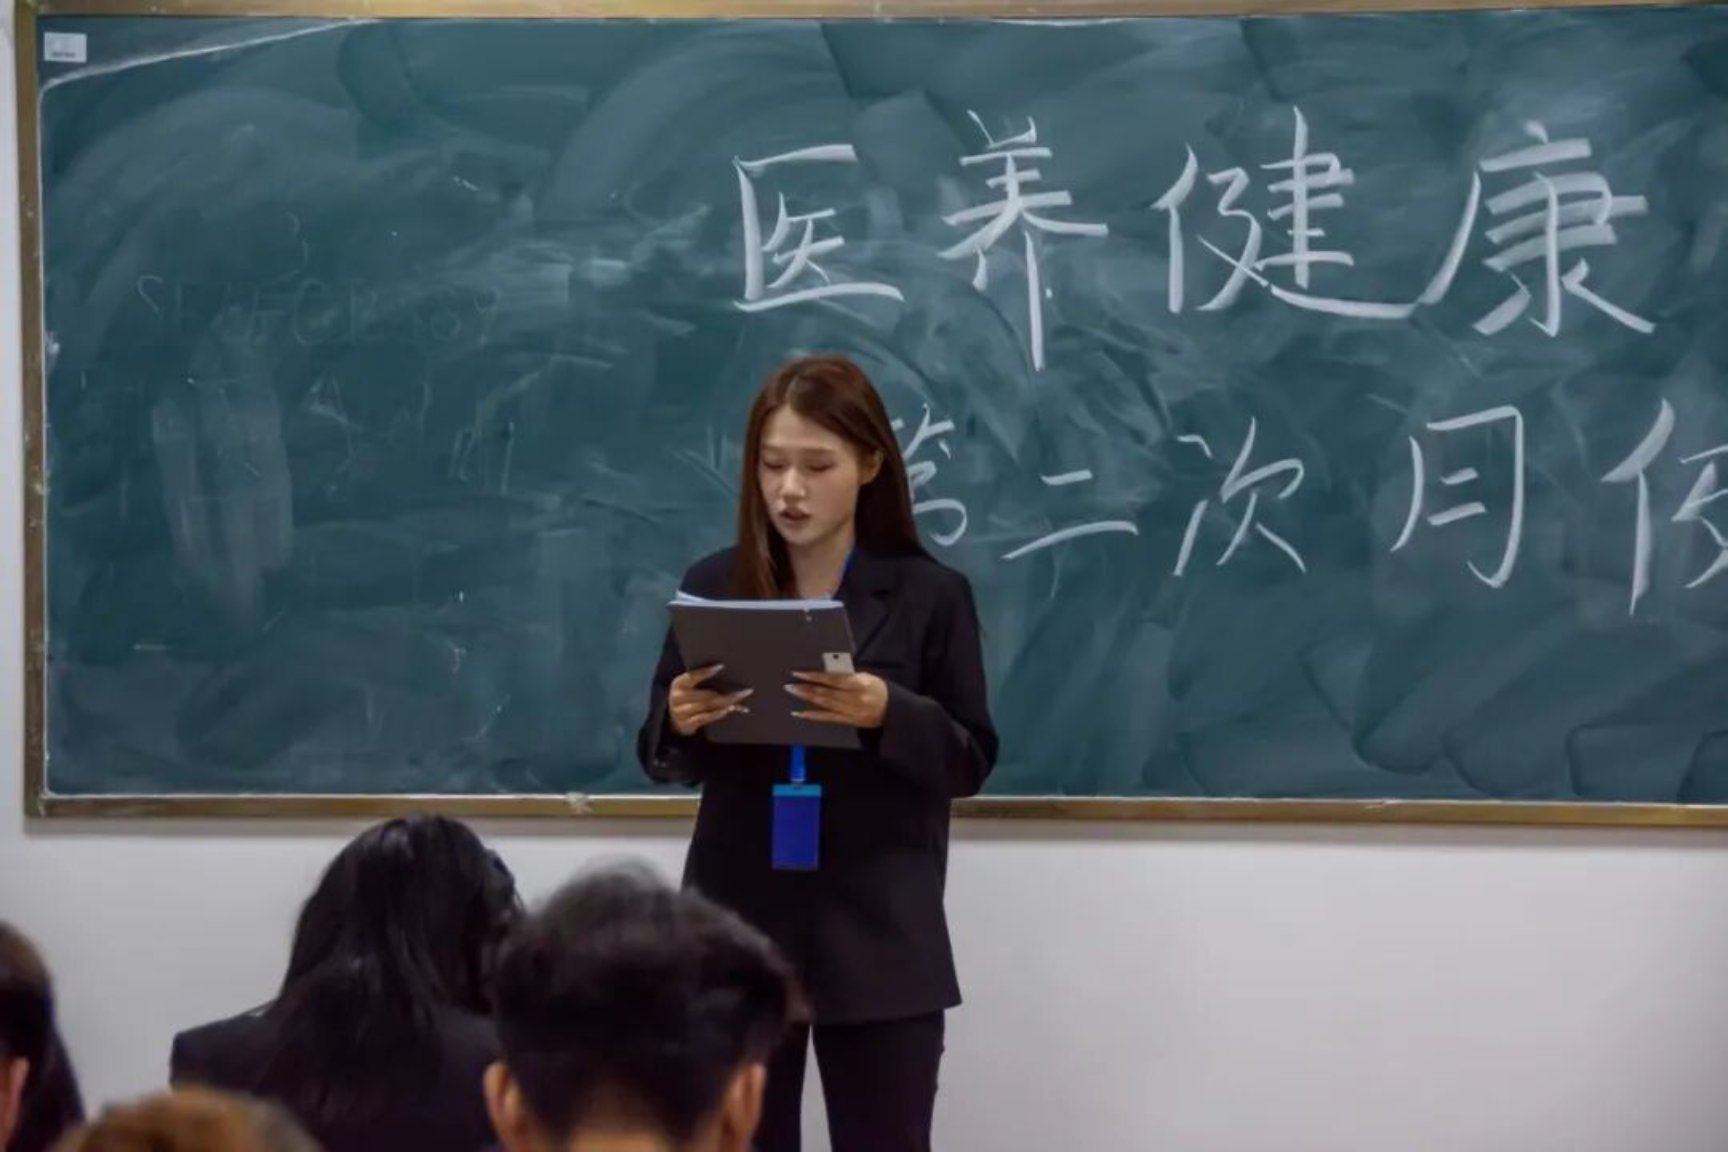 医养健康
第二次月